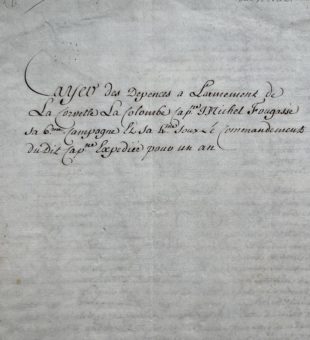 Cayer des Depences a Larmement de
La Corvette La Colombe Cap.ne Michel Fougasse
sa 6.me Campagne Et sa 4.me Soux Le Commandement
du Dit Cap.ne Expedier pour un an